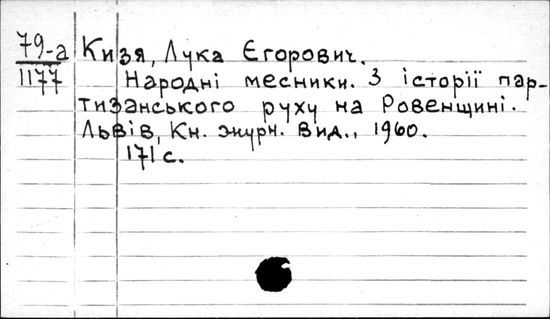 79-а
1177
Кизя, Лука Єгорович.
Народні месники. З історії пар-
тизанського руху на Ровенщині.
Львів, Кн. журн. вид., 1960.
171 с.